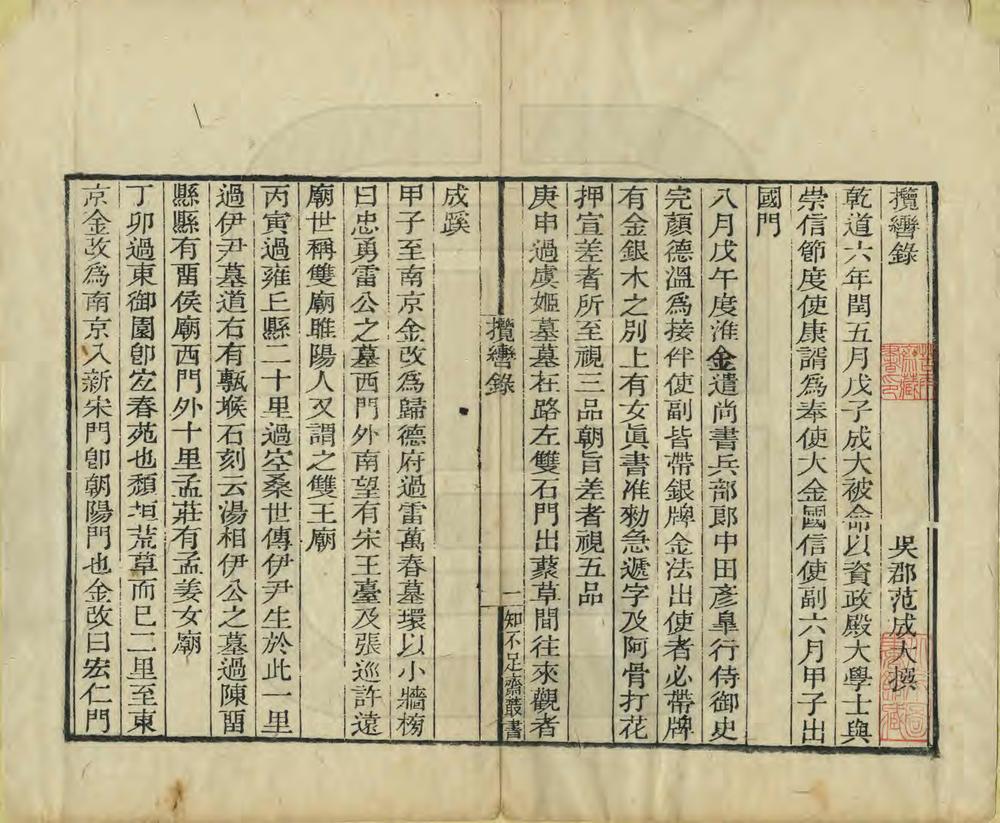 攬轡錄
吳郡范成大撰
乾道六年閏五月戊子成大被命以資政殿大學士與
崇信節度使康諝爲奉使大金國信使副六月甲子出
國門
八月戊午度淮金遣尚書兵部郎中田彥臯行侍御史
完顏德溫爲接伴使副皆帶銀牌金法出使者必帶牌
有金銀木之別上有女眞書准勑急遞字及阿骨打花
押宣差者所至視三品朝旨差者視五品
庚申過虞姬墓墓在路左雙石門出藂草間往來觀者
攬轡錄
一
知不足齋叢書
成蹊
甲子至南京金改爲歸德府過雷萬春墓環以小牆榜
曰忠勇雷公之墓西門外南望有宋王臺及張巡許遠
廟世稱雙廟睢陽人又謂之雙王廟
丙寅過雍丘縣二十里過空桑世傳伊尹生於此一里
過伊尹墓道右有甎堠石刻云湯相伊公之墓過陳畱
縣縣有畱侯廟西門外十里孟莊有孟姜女廟
丁卯過東御園卽宜春苑也頹垣荒草而已二里至東
京金改爲南京入新宋門卽朝陽門也金改曰宏仁門